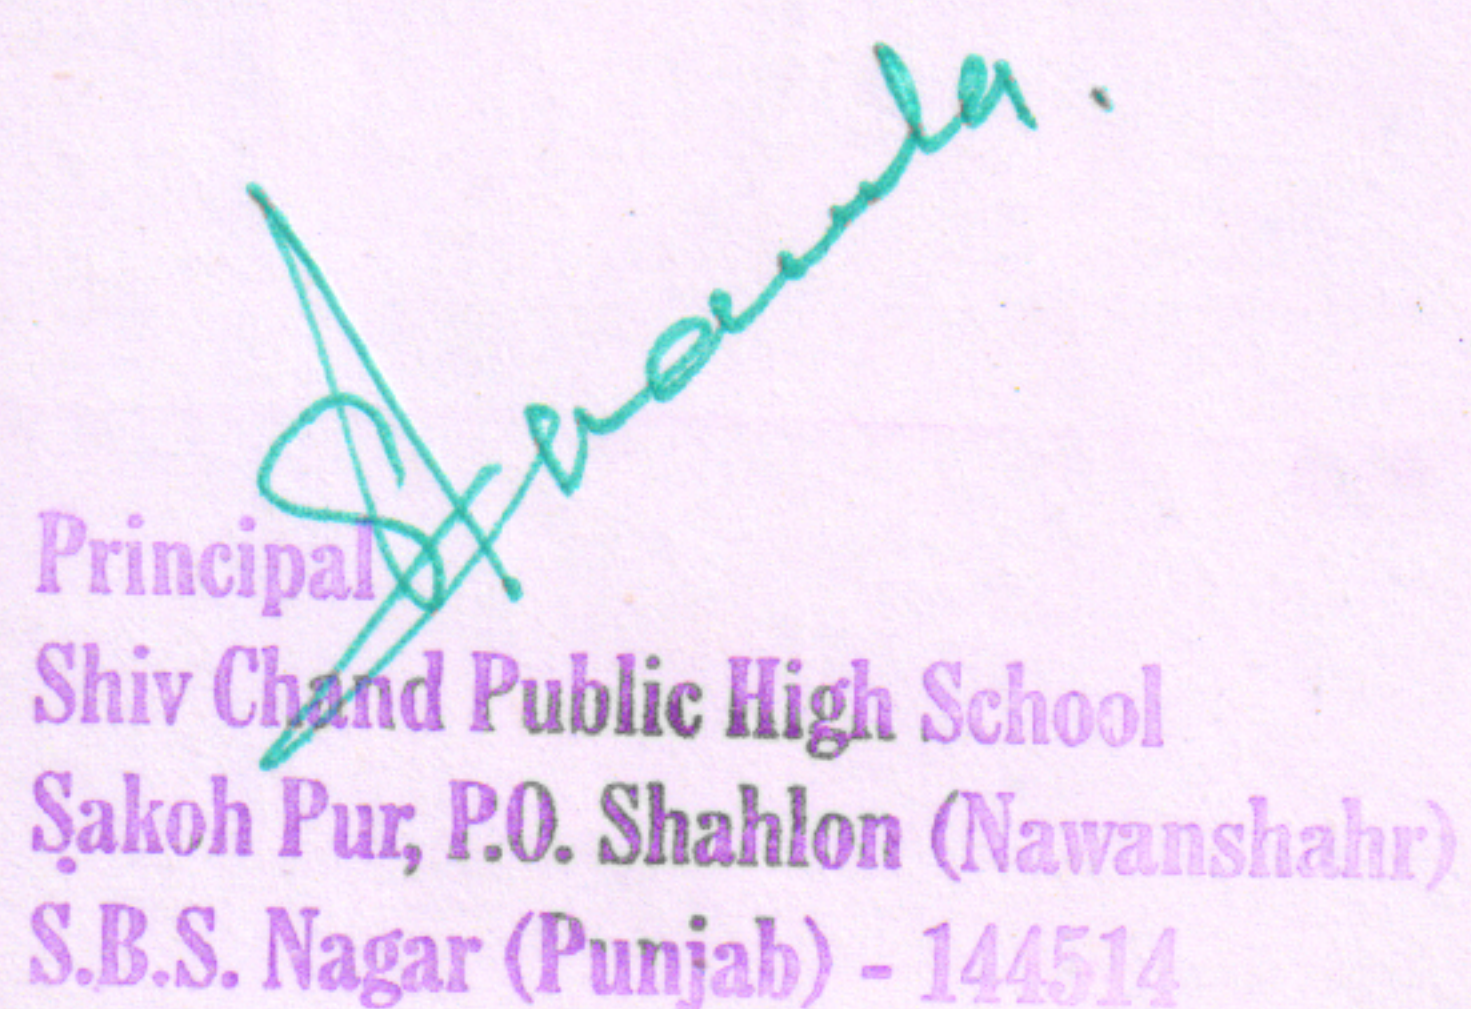 Principal
Shiv Chand Public High School
Sakoh Pur, P.O. Shahlon (Nawanshahr)
S.B.S. Nagar (Punjab) - 144514